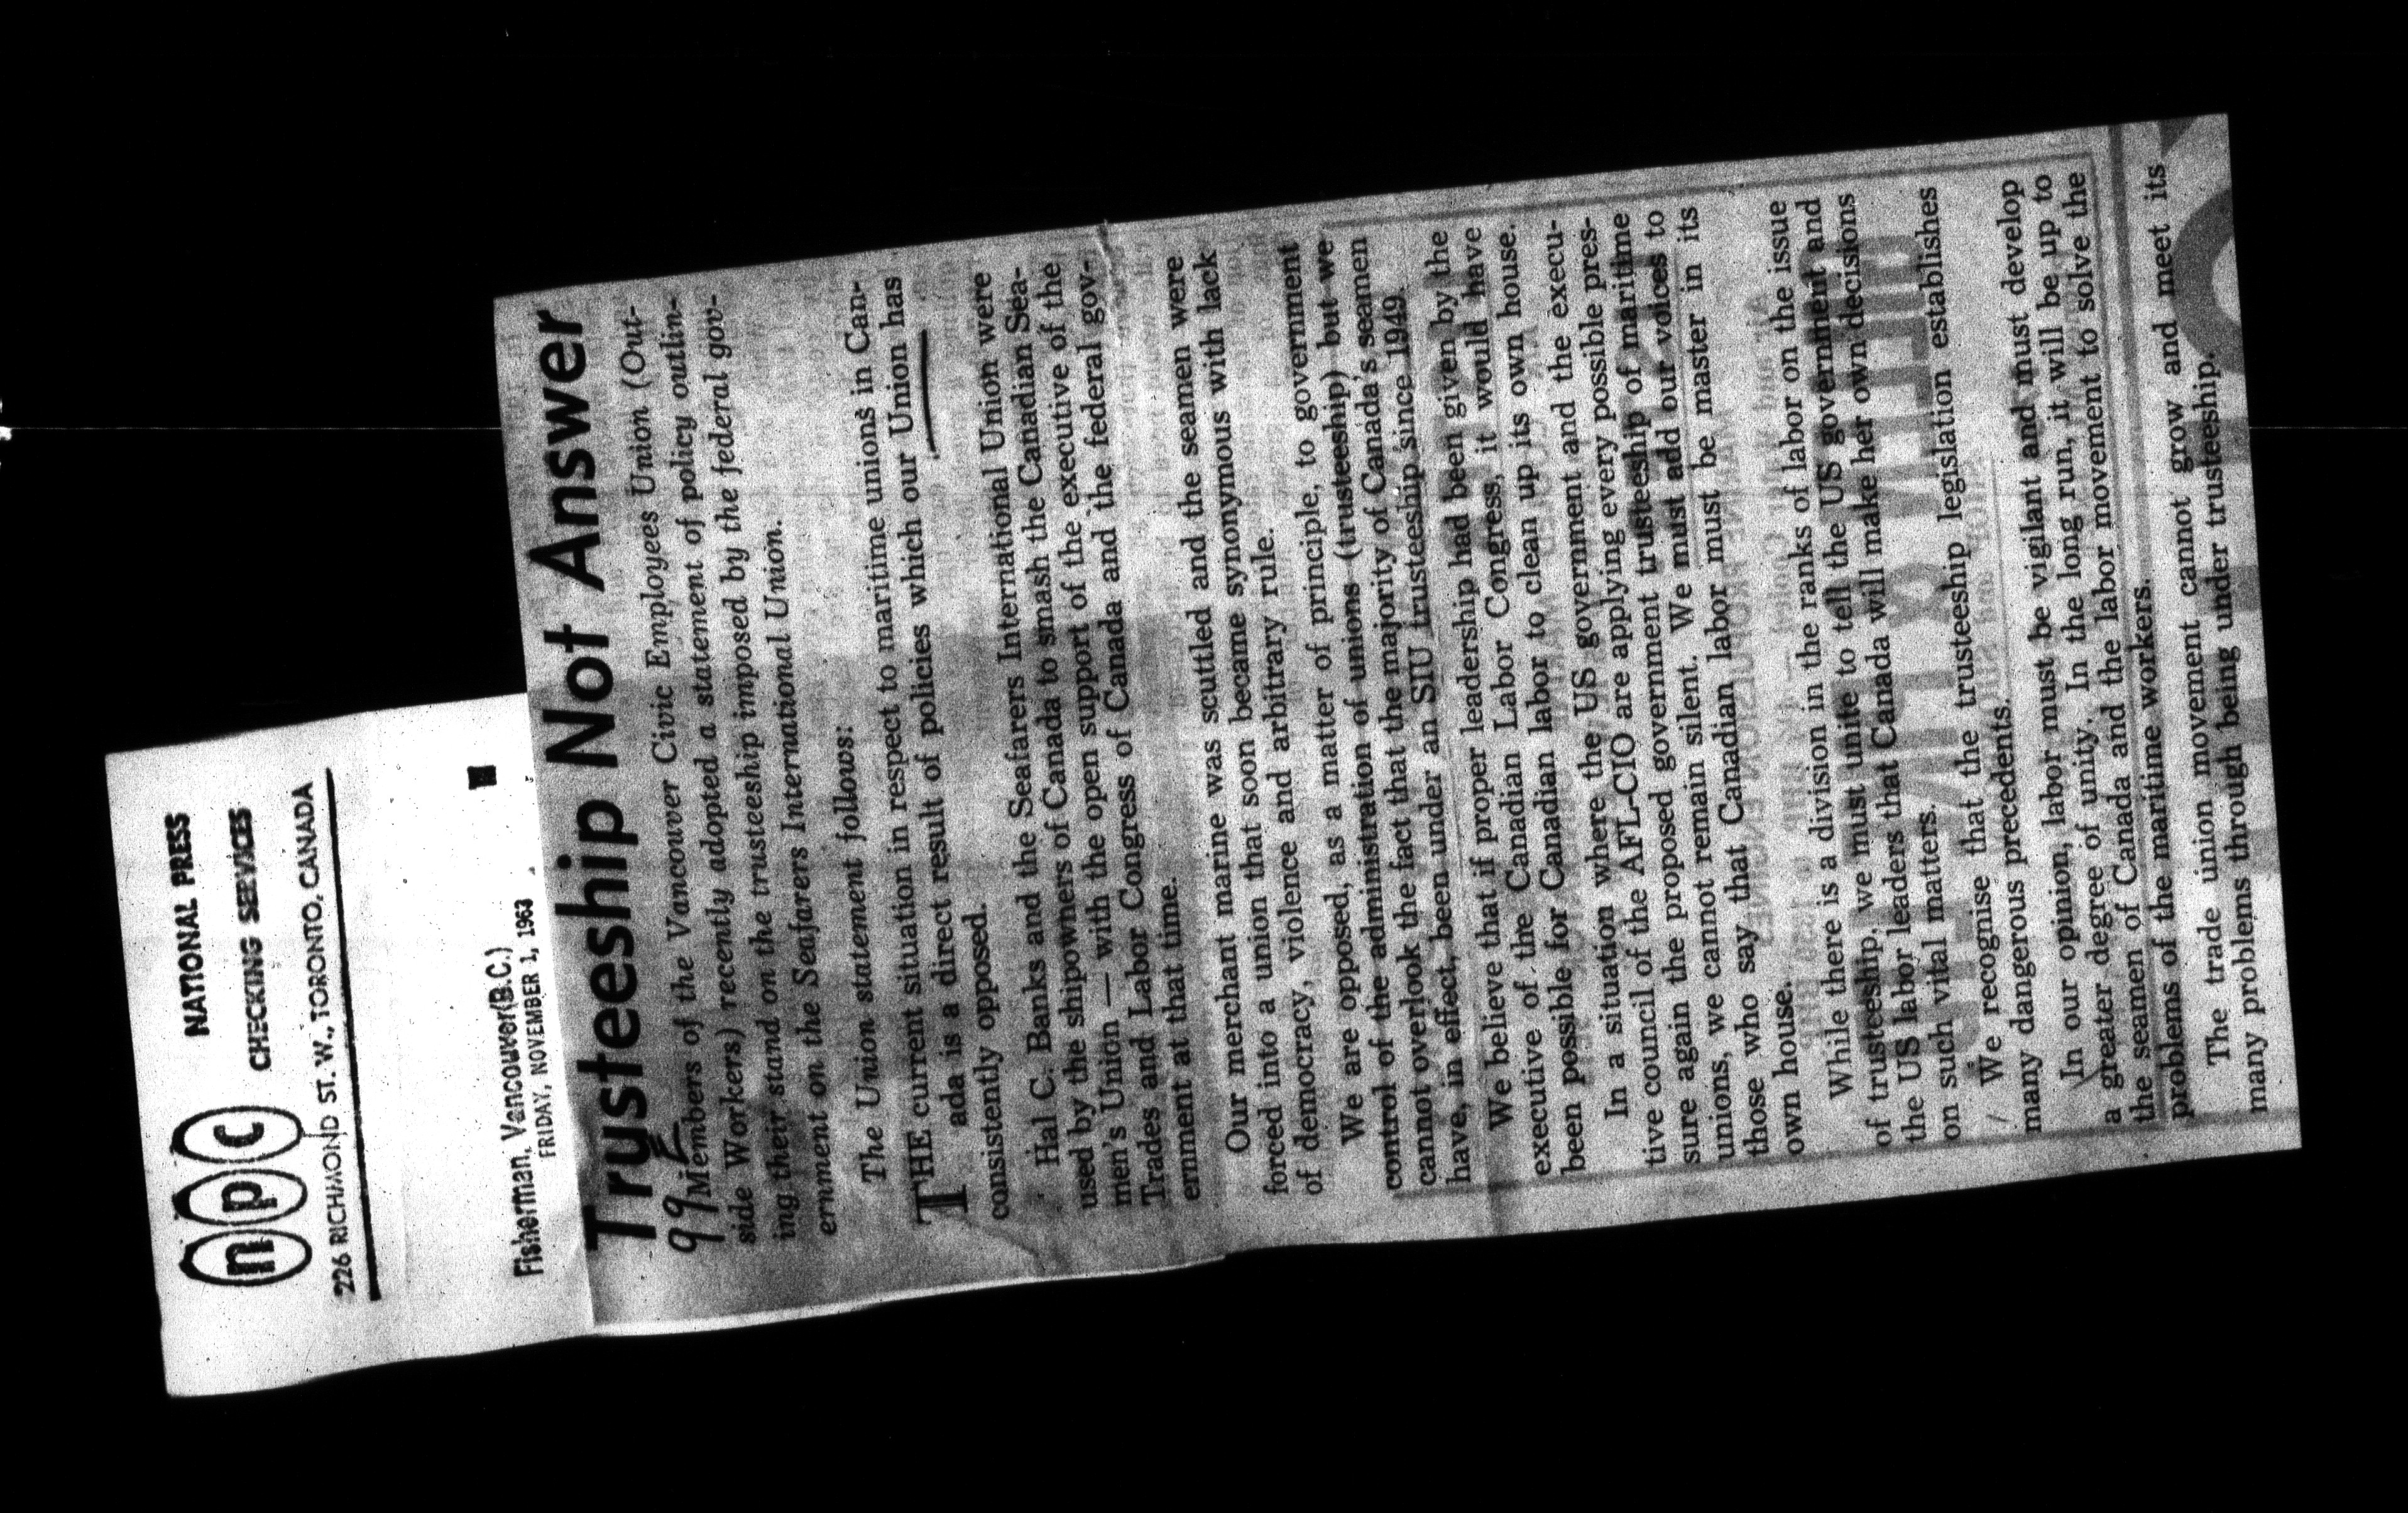 npc
NATIONAL PRESS
CHECKING SERVICES
226 RICHMOND ST. W., TORONTO, CANADA
Fisherman, Vancouver(B.C.)
FRIDAY, NOVEMBER 1, 1963
Trusteeship Not Answer
99
Members of the Vancouver Civic Employees Union (Out-
side Workers) recently adopted a statement of policy outlin-
ing their stand on the trusteeship imposed by the federal gov-
ernment on the Seafarers International Union.
The Union statement follows:
THE current situation in respect to maritime unions in Can-
ada is a direct result of policies which our Union has
consistently opposed.
Hal C. Banks and the Seafarers International Union were
used by the shipowners of Canada to smash the Canadian Sea-
men's Union — with the open support of the executive of the
Trades and Labor Congress of Canada and the federal gov-
ernment at that time.
Our merchant marine was scuttled and the seamen were
forced into a union that soon became synonymous with lack
of democracy, violence and arbitrary rule.
We are opposed, as a matter of principle, to government
control of the administration of unions (trusteeship) but we
cannot overlook the fact that the majority of Canada's seamen
have, in effect, been under an SIU trusteeship since 1949.
We believe that if proper leadership had been given by the
executive of the Canadian Labor Congress, it would have
been possible for Canadian labor to clean up its own house.
In a situation where the US government and the execu-
tive council of the AFL-CIO are applying every possible pres-
sure again the proposed government trusteeship of maritime
unions, we cannot remain silent. We must add our voices to
those who say that Canadian labor must be master in its
own house.
While there is a division in the ranks of labor on the issue
of trusteeship, we must unite to tell the US government and
the US labor leaders that Canada will make her own decisions
on such vital matters.
We recognise that the trusteeship legislation establishes
many dangerous precedents.
In our opinion, labor must be vigilant and must develop
a greater degree of unity. In the long run, it will be up to
the seamen of Canada and the labor movement to solve the
problems of the maritime workers.
The trade union movement cannot grow and meet its
many problems through being under trusteeship.